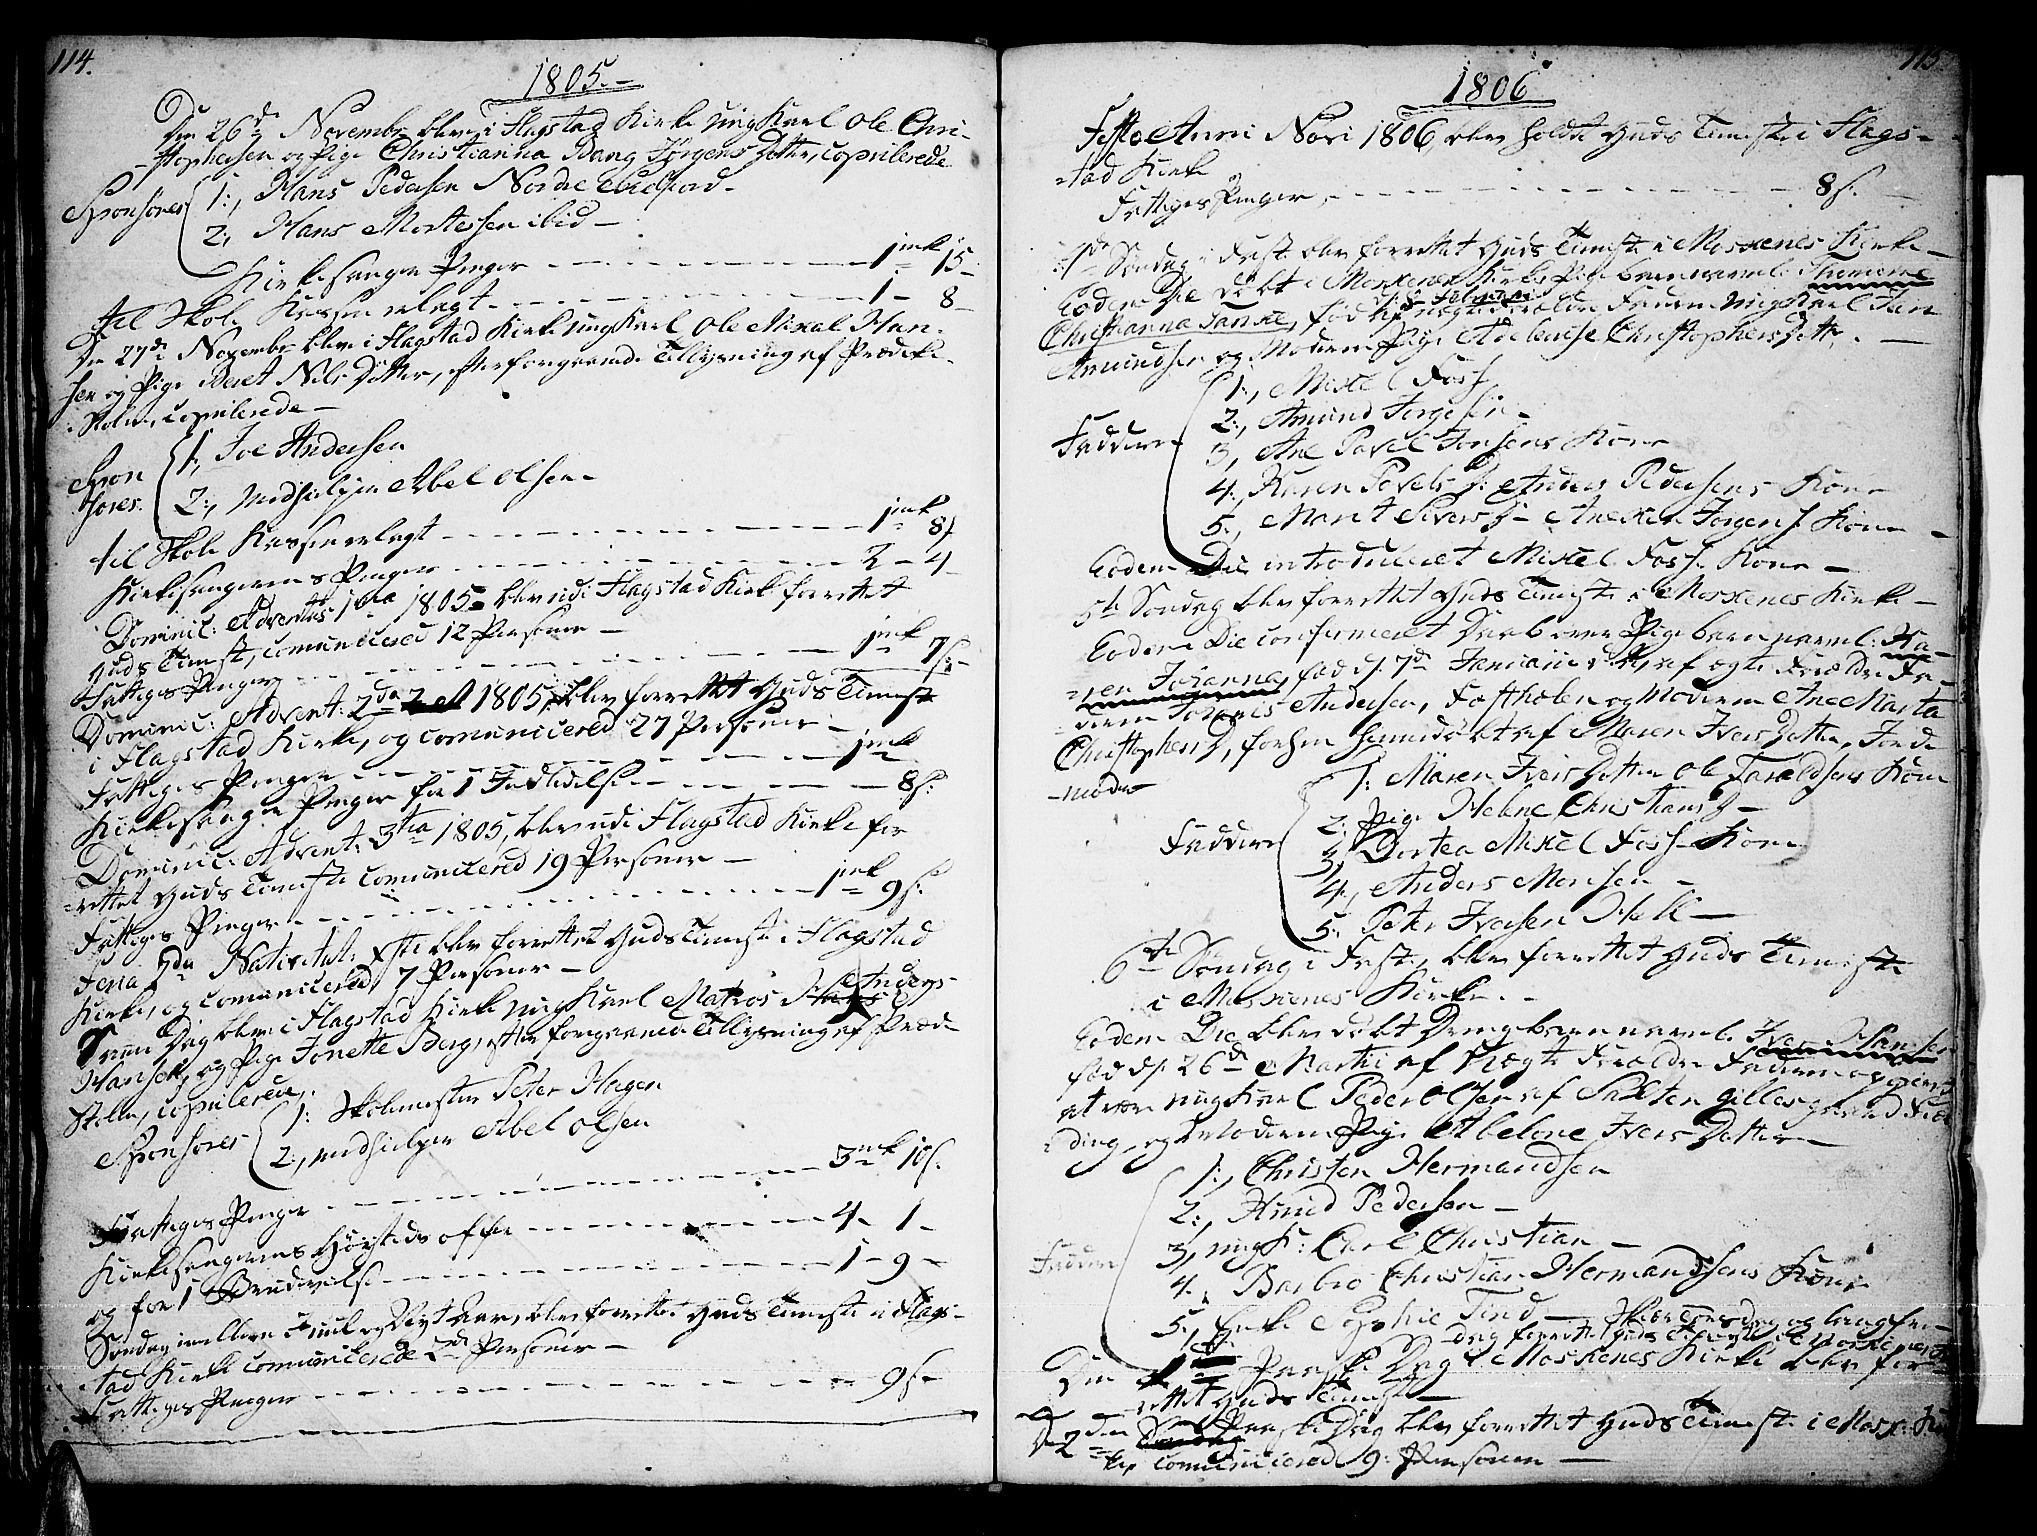 114.
1805.
Den 26de Novembr blev i Flagstad Kirke ungKarl Ole Chri-
stophersen og Pige Christianna Bang Jørgens Dotter, copulerede
Sponsores
1:, Hans Pedersen Nordre
2:, Hans Mortessen ibid
Kirkesanger Penger 1mk 15
til Skole Kassen erlagt 1 - 8
Den 27de Novembr blev i Flagstad Kirke ungKarl Ole Mikal Han-
sen og Pige Beret Nils Dotter, efter foregaaende Tillysning af Prædike-
Stolen, copulerede
Spon
sores.
1:, Joe Andersen
2:, Medhielper Abel Olsen
til Skole Kassen erlagt 1mk 8s
Kirkesangerens Penger 2 - 4
Dominic: Adventus 1ma 1805 blev udi Flagstad Kirke forrettet
Guds Tienest, comunicered 12 Personer
Fattiges Penger 1mk 7s:
Dominic: Advent: 2da 1805, blev forrettet Guds Tienest
i Flagstad Kirke, og comunicered 27 Personer
Fattiges Penger 1mk
Kirkesanger Penger for 1 Indledelse 8s:
Dominic: Advent: 3tia 1805, blev udi Flagstad Kirke for
rettet Guds Tieneste comunicered 19 Personer
Fattiges Penger 1mk 9s:
Feria 2da Nativitat: Xsti blev forrettet Guds Tieneste i Flagstad
Kirke, og comunicered 7 Personer
Samme Dag blev i Flagstad Kirke ungKarl Matros Anders
Hansen, og Pige Jonette Berg, efter foregaaende Tillysning af Præde
Stolen, copulerede,
Sponsores
1: Skolemester Peter Hagen
2:, Medhielper Abel Olsen
Fattiges Penger 3mk 10s.
Kirkesangerens Høitids offer 4 - 1
og for 1 Brudevielse 1 - 9
Søndag imellem Juul og Nyt Aar, blev forrettet Guds Tieneste i Flags-
tad Kirke comunicerede 2de Personer
Fattiges Penger 9s

115
1806
Festo Anni Novi 1806, blev holdt Guds Tieneste i Flags-
tad Kirke
Fattiges Penger 8s.
1de Søndag i Faste blev forrettet Guds Tieneste i Moskenes Kirke
Eodem Die døbt i Moskenes Kirke Pigebarn navnl.
Christianna Janske, fød af uægte Forældre Faderen ungKarl Jan
Amundsen og Moderen Pige Adelucse Christophersdotter.
Faddere
1:, Mikkel Foss
2:, Amund Jørgesen
3, Ane Pavel Jonsens Kone
4:, Karen Povels D: Anders Pedersens Kone
5:, Marit Sivers D Jørgens Kone
Eodem Die introduceret Mikkel Foss Kone
5te Søndag blev forrettet Guds Tieneste i Moskenes Kirke
Eodem Die confirmeret Daab over Pigebarn navnl: Ka-
ren Johanna, fød d. 7de Januarii af ægte Forældre Fa-
deren Johannis Andersen, Fostholen og Moderen Ane Marta
Christophers D, forhen hiemdøbt af Maren Ivers Dotter, Jorde
moder
Faddere
1: Maren Ivers Dotter Ole Taraldsens Kone
2: Pige Helene Christians D
3, Dortea Mikel Foss Kone
4:, Anders Monsen
5: Peter Iversen Hell
6te Søndag i Faste, blev forrettet Guds Tieneste
i Moskenes Kirke.
Eodem Die blev døbt Drengebarn navnl. Iver Hansen
fød d. 26de Martii af Uægte Forældre Faderen opgivet
at være ungKarl Peder Olsen af Salten Gillesgaard
og Moderen Pige Abelone Ivers Dotter
Faddere
1:, Christen Hermandsen
2:, Amund Pedersen
3, ungK: Carl Christian
4:, Barbro Christian Hermandsens Kone
5:, Enke Sophie Tind
Skiærtorsdag og langfre-
dag forrettet Guds Tieneste i Moskenes
Den 1ste Paaske Dag i Moskenes Kirke blev for
rettet Guds Tienest
Den 2den Paaske Dag blev forrettet Guds Tieneste i Mosk: Kir
ke, comunicered 9: Personer